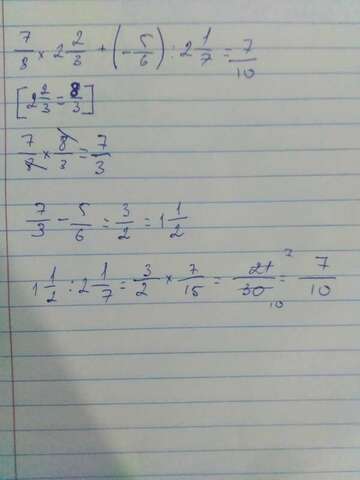 7/8 × 2 2/3 + (- 5/6) : 2 1/7 = 7/10
[2 2/3 = 8/3]
7/8 × 8/3 = 7/3
7/3 - 5/6 = 3/2 = 1 1/2
1 1/2 : 2 1/7 = 3/2 × 7/15 = 21/30 = 7/10
7
10